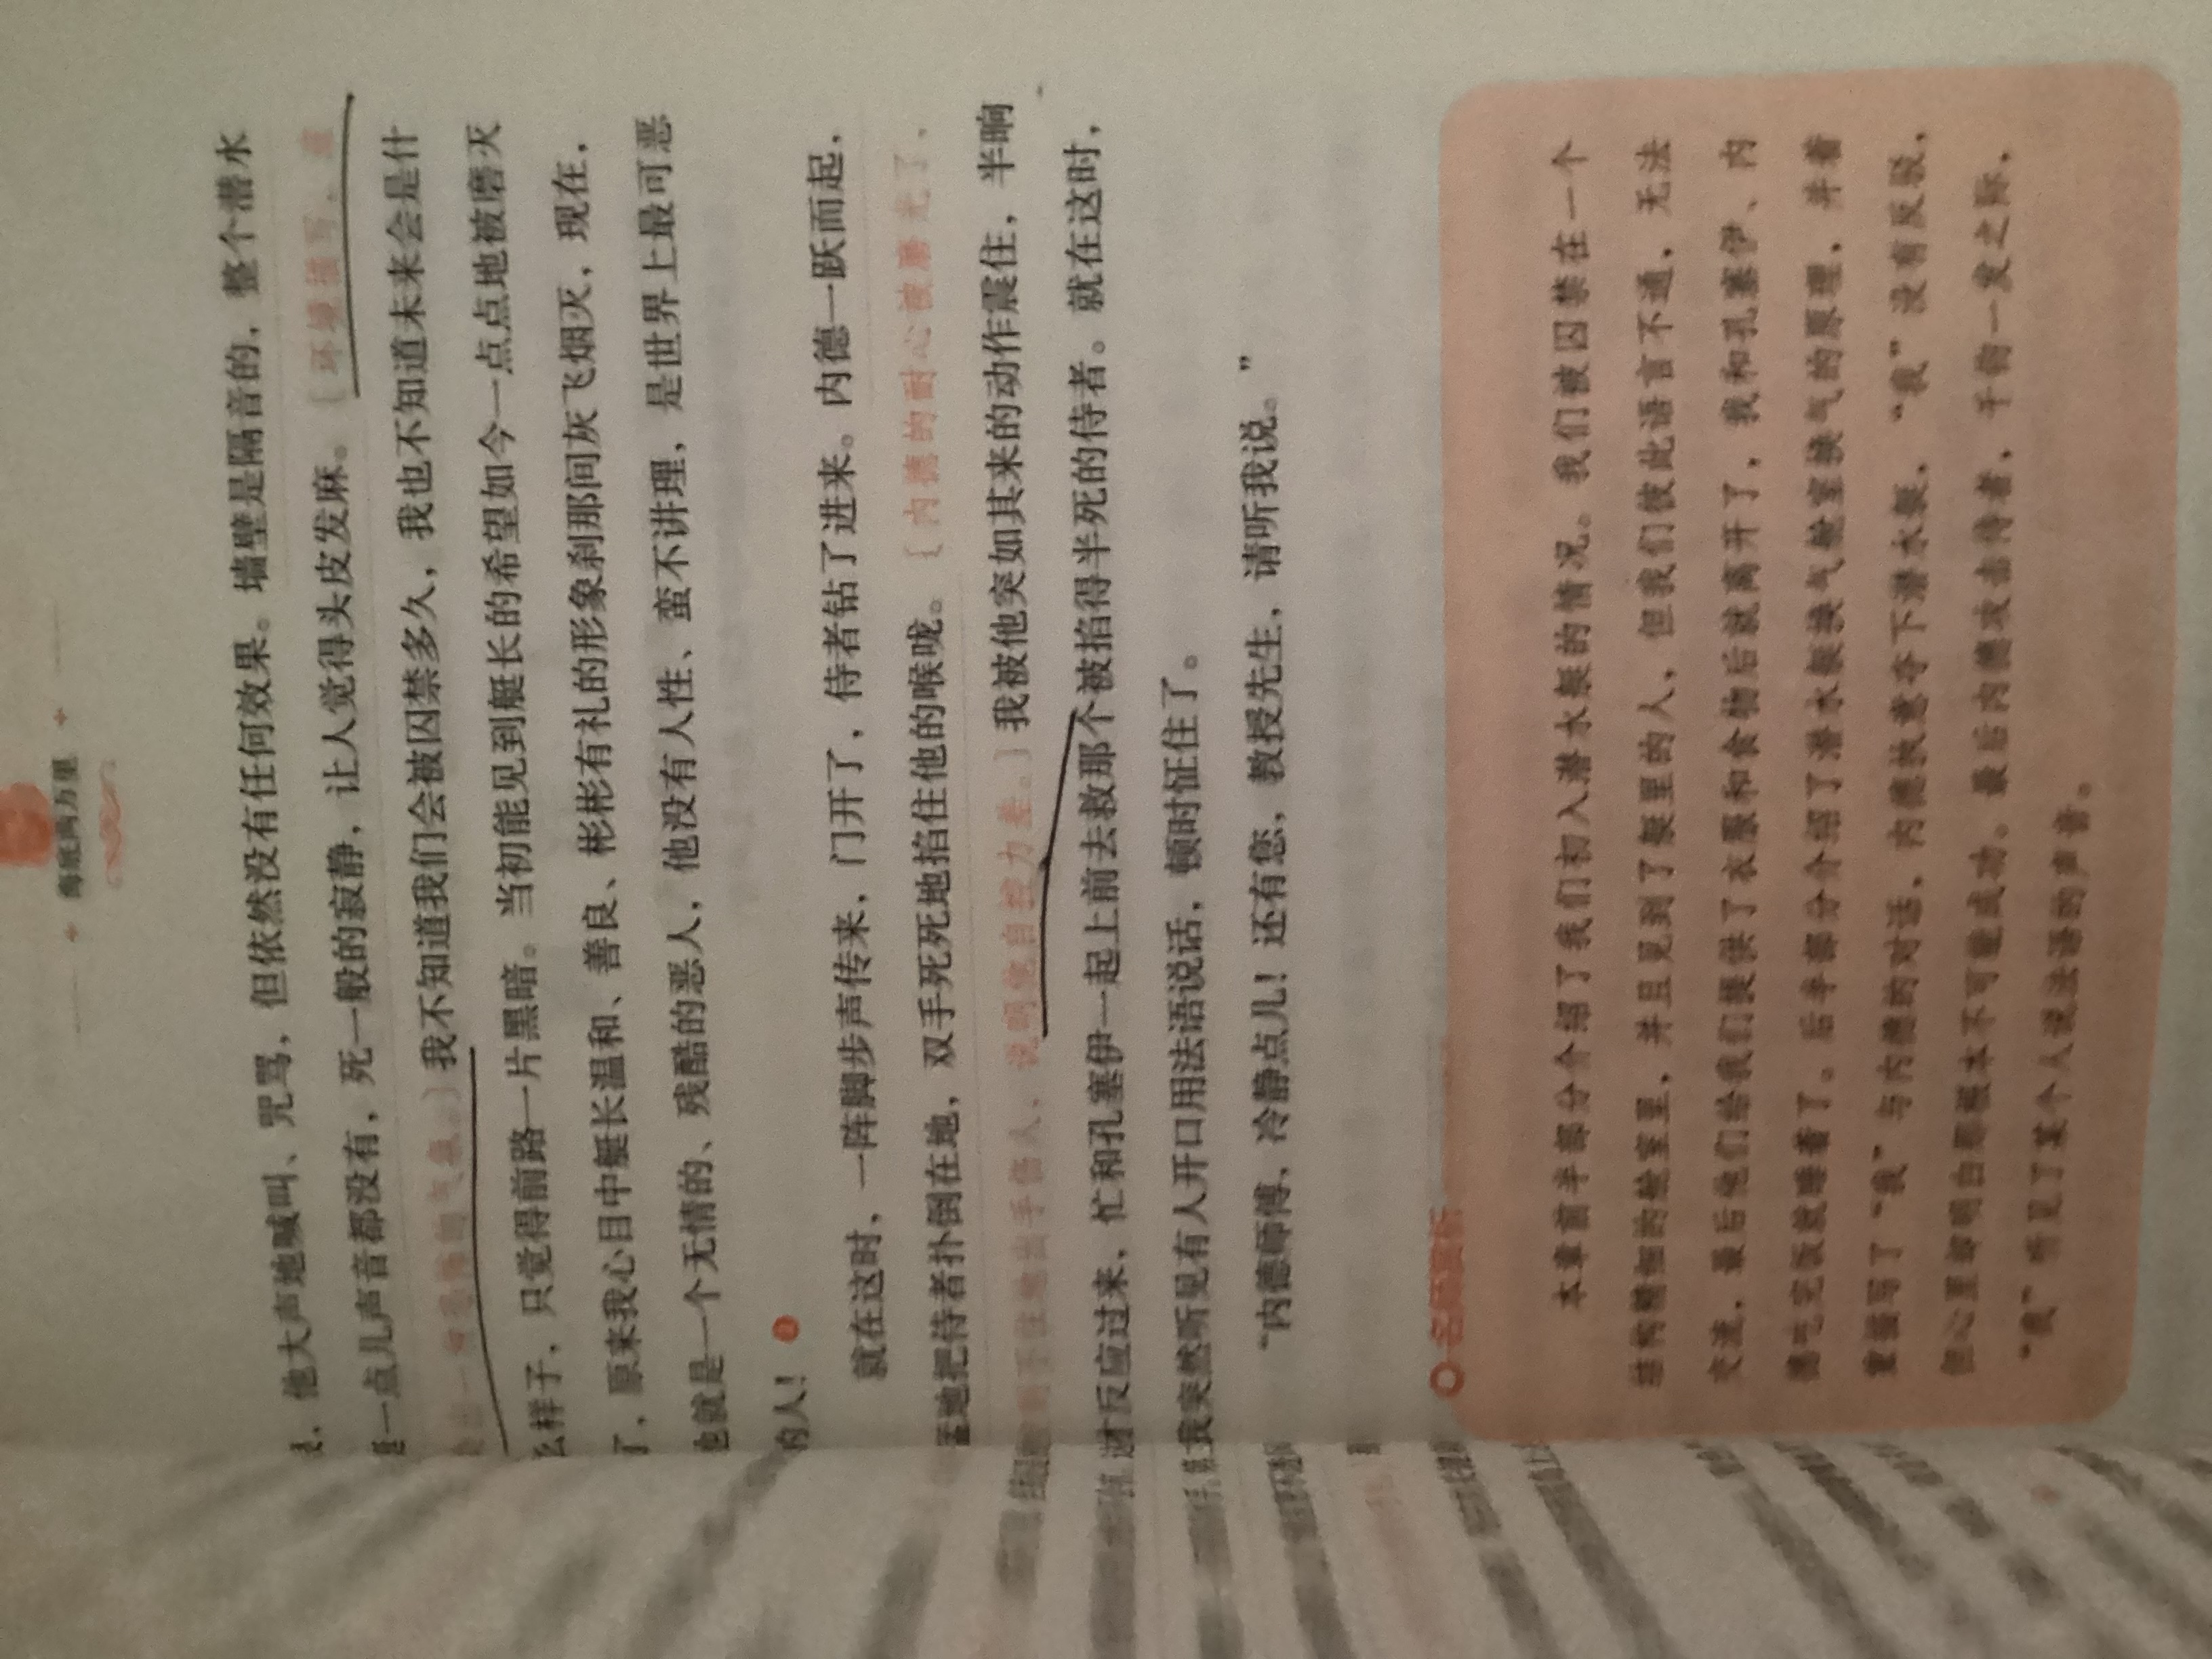 海底两万里
，他大声地喊叫、咒骂，但依然没有任何效果。墙壁是隔音的，整个潜水
一点儿声音都没有，死一般的寂静，让人觉得头皮发麻。［环境描写，
气氛。］我不知道我们会被囚禁多久，我也不知道未来会是什
么样子，只觉得前路一片黑暗。当初能见到艇长的希望如今一点点地被磨灭
了，原来我心目中艇长温和、善良、彬彬有礼的形象刹那间灰飞烟灭，现在，
他就是一个无情的、残酷的恶人，他没有人性、蛮不讲理，是世界上最可恶
的人！
就在这时，一阵脚步声传来，门开了，侍者钻了进来。内德一跃而起，
猛地把侍者扑倒在地，双手死死地掐住他的喉咙。［内德的耐心被磨光了，
出手伤人，说明他自控力差。］我被他突如其来的动作震住，半晌
才反应过来，忙和孔塞伊一起上前去救那个被掐得半死的侍者。就在这时，
我突然听见有人开口用法语说话，顿时怔住了。
“内德师傅，冷静点儿！还有您，教授先生，请听我说。”
名师赏析
本章前半部分介绍了我们初入潜水艇的情况。我们被囚禁在一个
结构精细的舱室里，并且见到了艇里的人，但我们彼此语言不通，无法
交流，最后他们给我们提供了衣服和食物后就离开了，我和孔塞伊、内
德吃完饭就睡着了。后半部分介绍了潜水艇换气舱室换气的原理，并着
重描写了“我”与内德的对话，内德执意夺下潜水艇，“我”没有反驳，
但心里却明白那根本不可能成功。最后内德攻击侍者，千钧一发之际，
“我”听见了某个人说法语的声音。